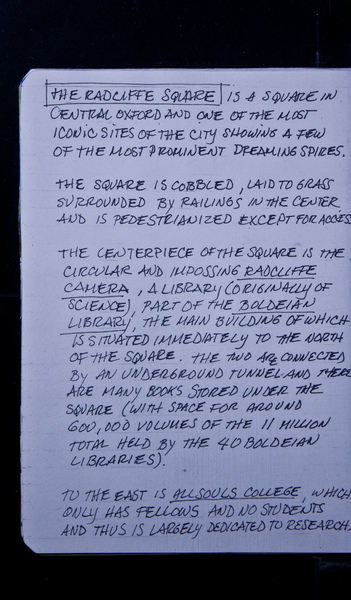 THE RADCLIFFE SQUARE IS A SQUARE IN
CENTRAL OXFORD AND ONE OF THE MOST
ICONIC SITES OF THE CITY SHOWING A FEW
OF THE MOST PROMINENT DREAMING SPIRES.
THE SQUARE IS COBBLED, LAID TO GRASS
SURROUNDED BY RAILINGS IN THE CENTER
AND IS PEDESTRIANIZED EXCEPT FOR ACCESS
THE CENTERPIECE OF THE SQUARE IS THE
CIRCULAR AND IMPOSSING RADCLIFFE
CAMERA, A LIBRARY (ORIGINALLY OF
SCIENCE), PART OF THE BOLDEIAN
LIBRARY, THE MAIN BUILDING OF WHICH
IS SITUATED IMMEDIATELY TO THE NORTH
OF THE SQUARE. THE TWO ARE CONNECTED
BY AN UNDERGROUND TUNNEL AND THERE
ARE MANY BOOKS STORED UNDER THE
SQUARE (WITH SPACE FOR AROUND
600,000 VOLUMES OF THE 11 MILLION
TOTAL HELD BY THE 40 BOLDEIAN
LIBRARIES).
TO THE EAST IS ALLSOULS COLLEGE, WHICH
ONLY HAS FELLOWS AND NO STUDENTS
AND THUS IS LARGELY DEDICATED TO RESEARCH.